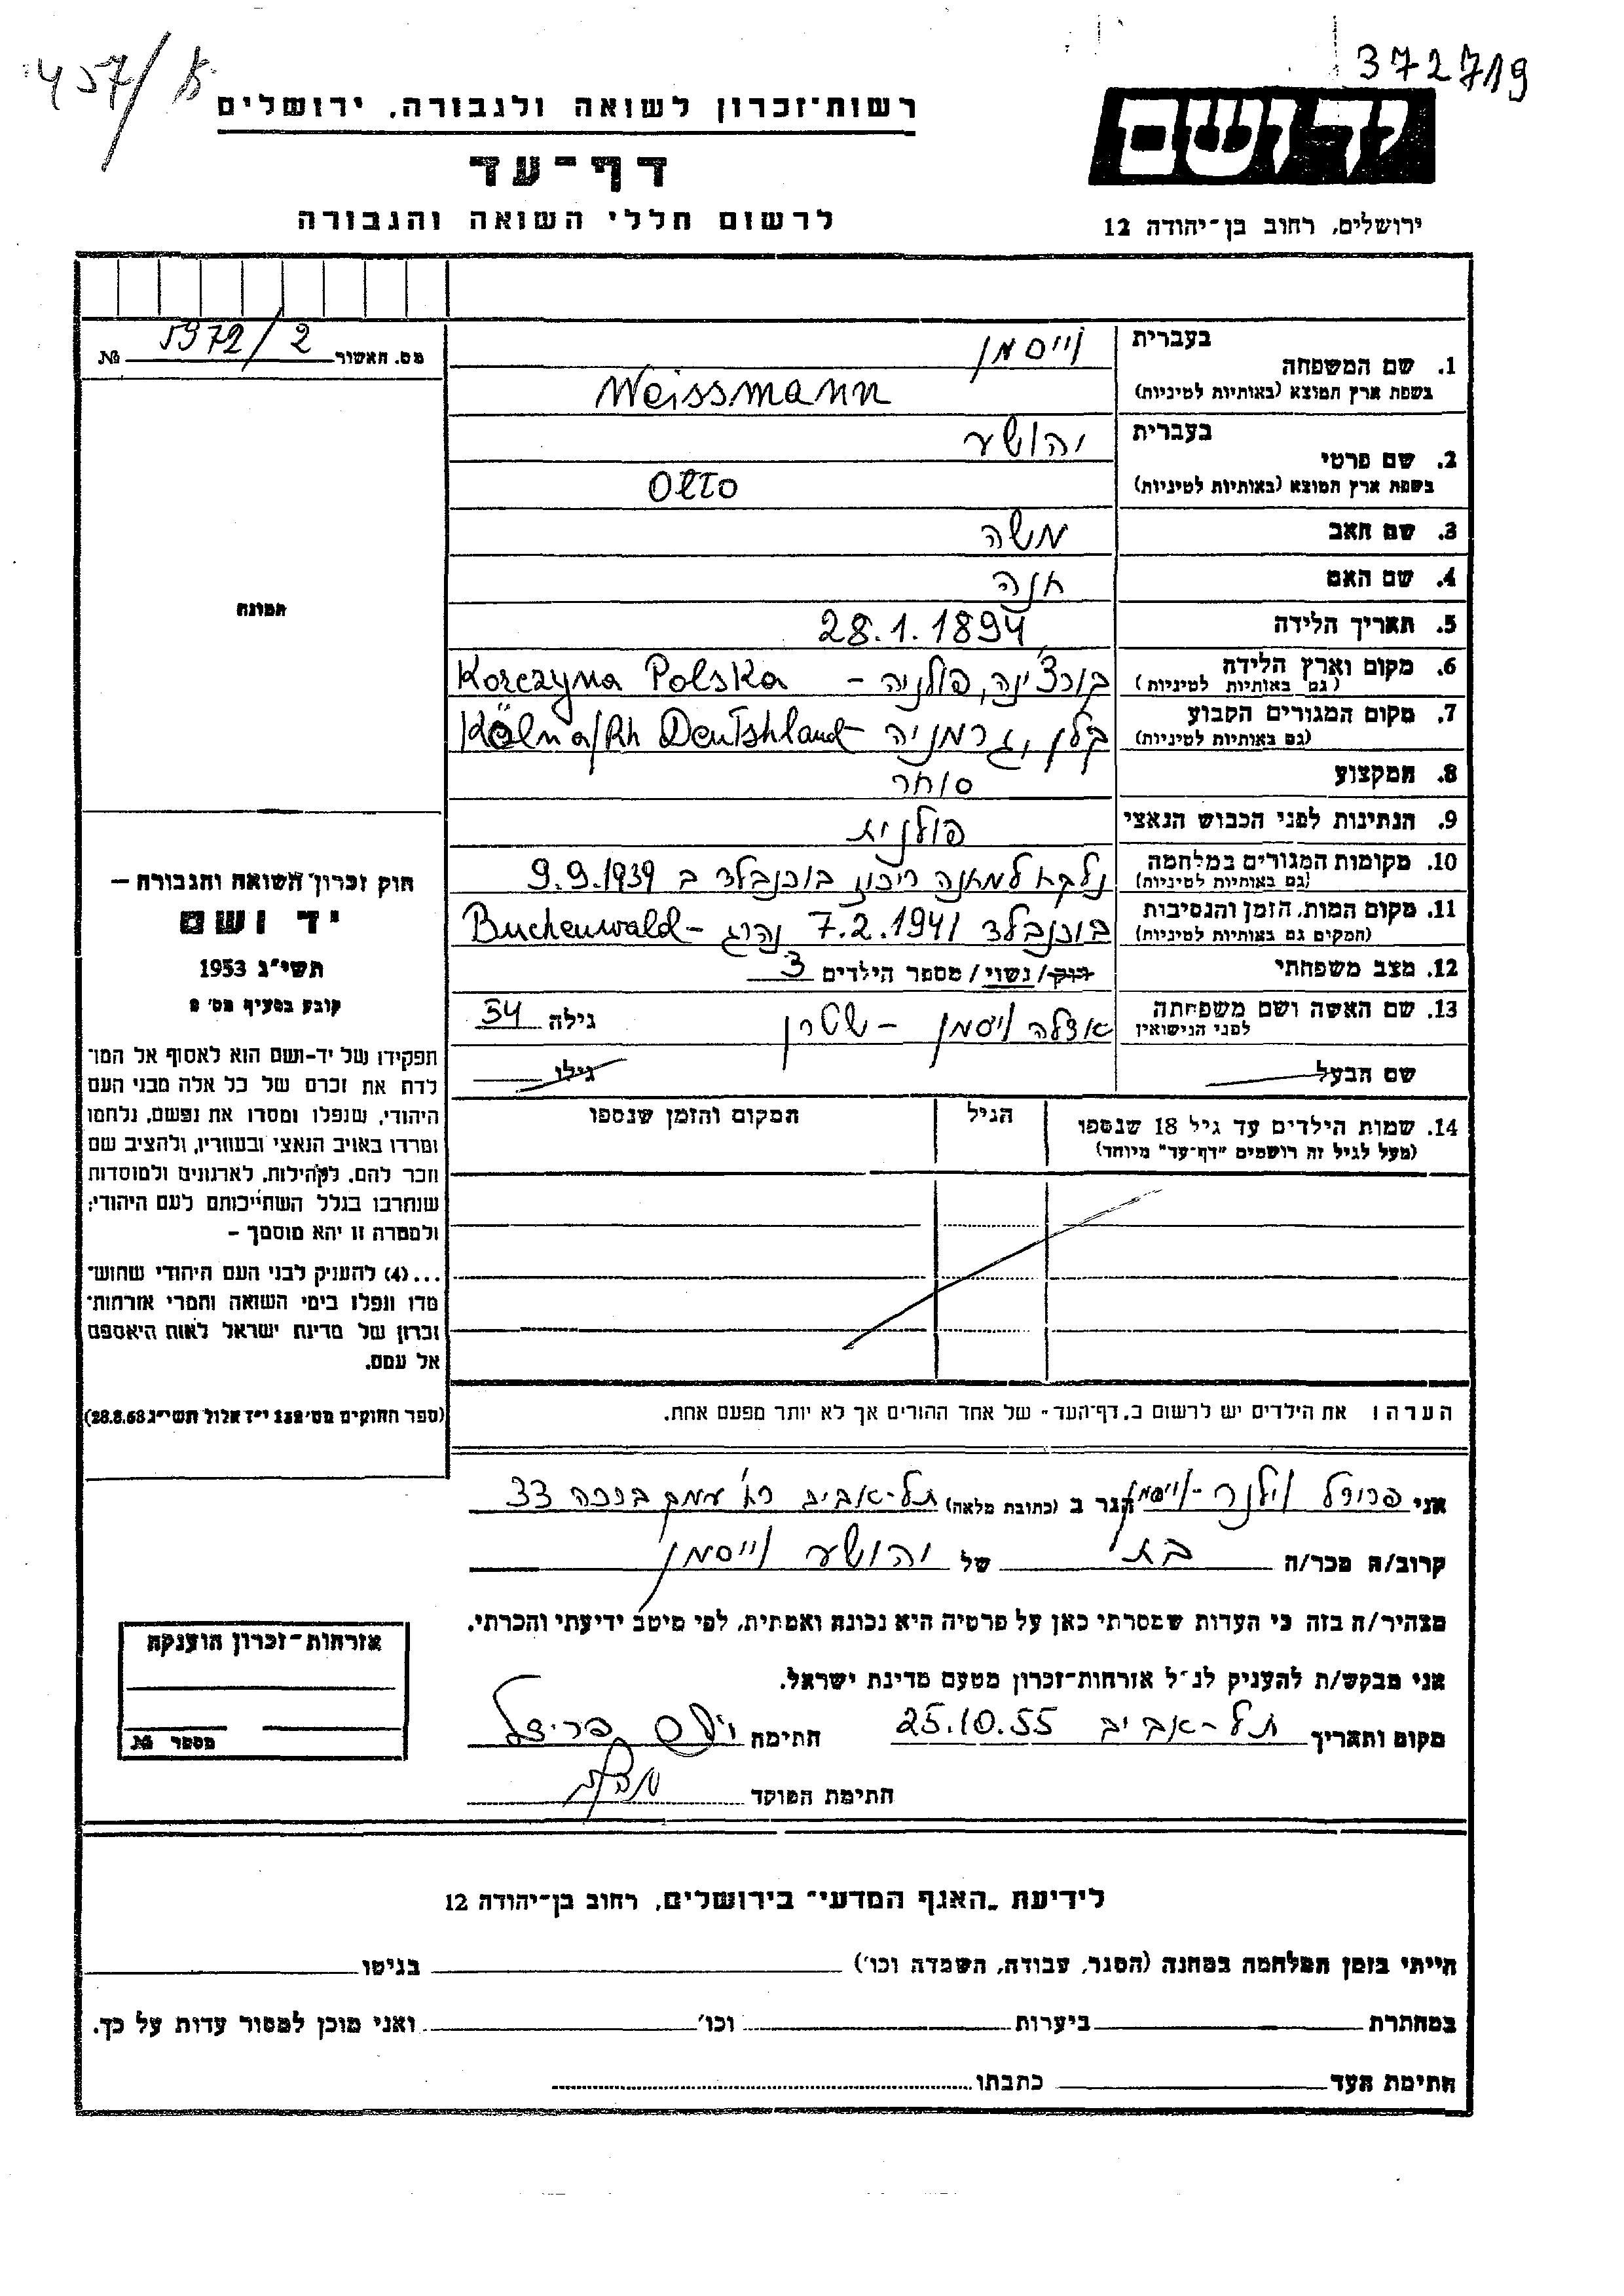 457/א
372719
יד ושם
רשות-זכרון לשואה ולגבורה, ירושלים
דף-עד
לרשום חללי השואה והגבורה
ירושלים, רחוב בן-יהודה 12
מס. האשור 5972/2 №
תמונה
חוק זכרון השואה והגבורה –
יד ושם
תשי״ג 1953
קובע בסעיף מס׳ 2
תפקידו של יד-ושם הוא לאסוף אל המו־
לדת את זכרם של כל אלה מבני העם
היהודי, שנפלו ומסרו את נפשם, נלחמו
ומרדו באויב הנאצי ובעוזריו, ולהציב שם
וזכר להם, לקהילות, לארגונים ולמוסדות
שנחרבו בגלל השתייכותם לעם היהודי;
ולמטרה זו יהא מוסמך –
...(4) להעניק לבני העם היהודי שהוש־
מדו ונפלו בימי השואה והמרי אזרחות־
זכרון של מדינת ישראל לאות היאספם
אל עמם.
(ספר החוקים מס׳ 132 י״ז אלול תשי״ג 28.8.53)
בעברית וייסמן
1. שם המשפחה
בשפת ארץ המוצא (באותיות לטיניות) Weissmann
בעברית יהושע
2. שם פרטי
בשפת ארץ המוצא (באותיות לטיניות) Otto
3. שם האב משה
4. שם האם חנה
5. תאריך הלידה 28.1.1894
6. מקום וארץ הלידה
(גם באותיות לטיניות) קורצ׳ינה, פולניה – Korczyna Polska
7. מקום המגורים הקבוע
(גם באותיות לטיניות) קלן, גרמניה Köln a/Rh Deutshland
8. המקצוע סוחר
9. הנתינות לפני הכבוש הנאצי פולנית
10. מקומות המגורים במלחמה
(גם באותיות לטיניות) נלקח למחנה ריכוז בוכנבלד ב 9.9.1939
11. מקום המות, הזמן והנסיבות
(המקום גם באותיות לטיניות) בוכנבלד 7.2.1941 נהרג – Buchenwald
12. מצב משפחתי רוק/נשוי/מספר הילדים 3
13. שם האשה ושם משפחתה
לפני הנישואין אצלה ויסמן – שטרן גילה 54
שם הבעל גילו
14. שמות הילדים עד גיל 18 שנספו הגיל המקום והזמן שנספו
(מעל לגיל זה רושמים "דף-עד" מיוחד)
הערה: את הילדים יש לרשום ב„דף-העד״ של אחד ההורים אך לא יותר מפעם אחת.
אני פרידל וילנר-וייסמן הגר ב (כתובת מלאה) תל-אביב רח׳ עמק ברכה 33
קרוב/ה מכר/ה בת של יהושע וייסמן
מצהיר/ה בזה כי העדות שמסרתי כאן על פרטיה היא נכונה ואמתית, לפי מיטב ידיעתי והכרתי.
אני מבקש/ת להעניק לנ״ל אזרחות-זכרון מטעם מדינת ישראל.
מקום ותאריך תל-אביב 25.10.55 חתימה פרידל
חתימת הפוקד
אזרחות-זכרון הוענקה
מספר №
לידיעת „האגף המדעי״ בירושלים, רחוב בן-יהודה 12
הייתי בזמן המלחמה במחנה (הסגר, עבודה, השמדה וכו׳) בגיטו
במחתרת ביערות וכו׳ ואני מוכן למסור עדות על כך.
חתימת העד כתבתו